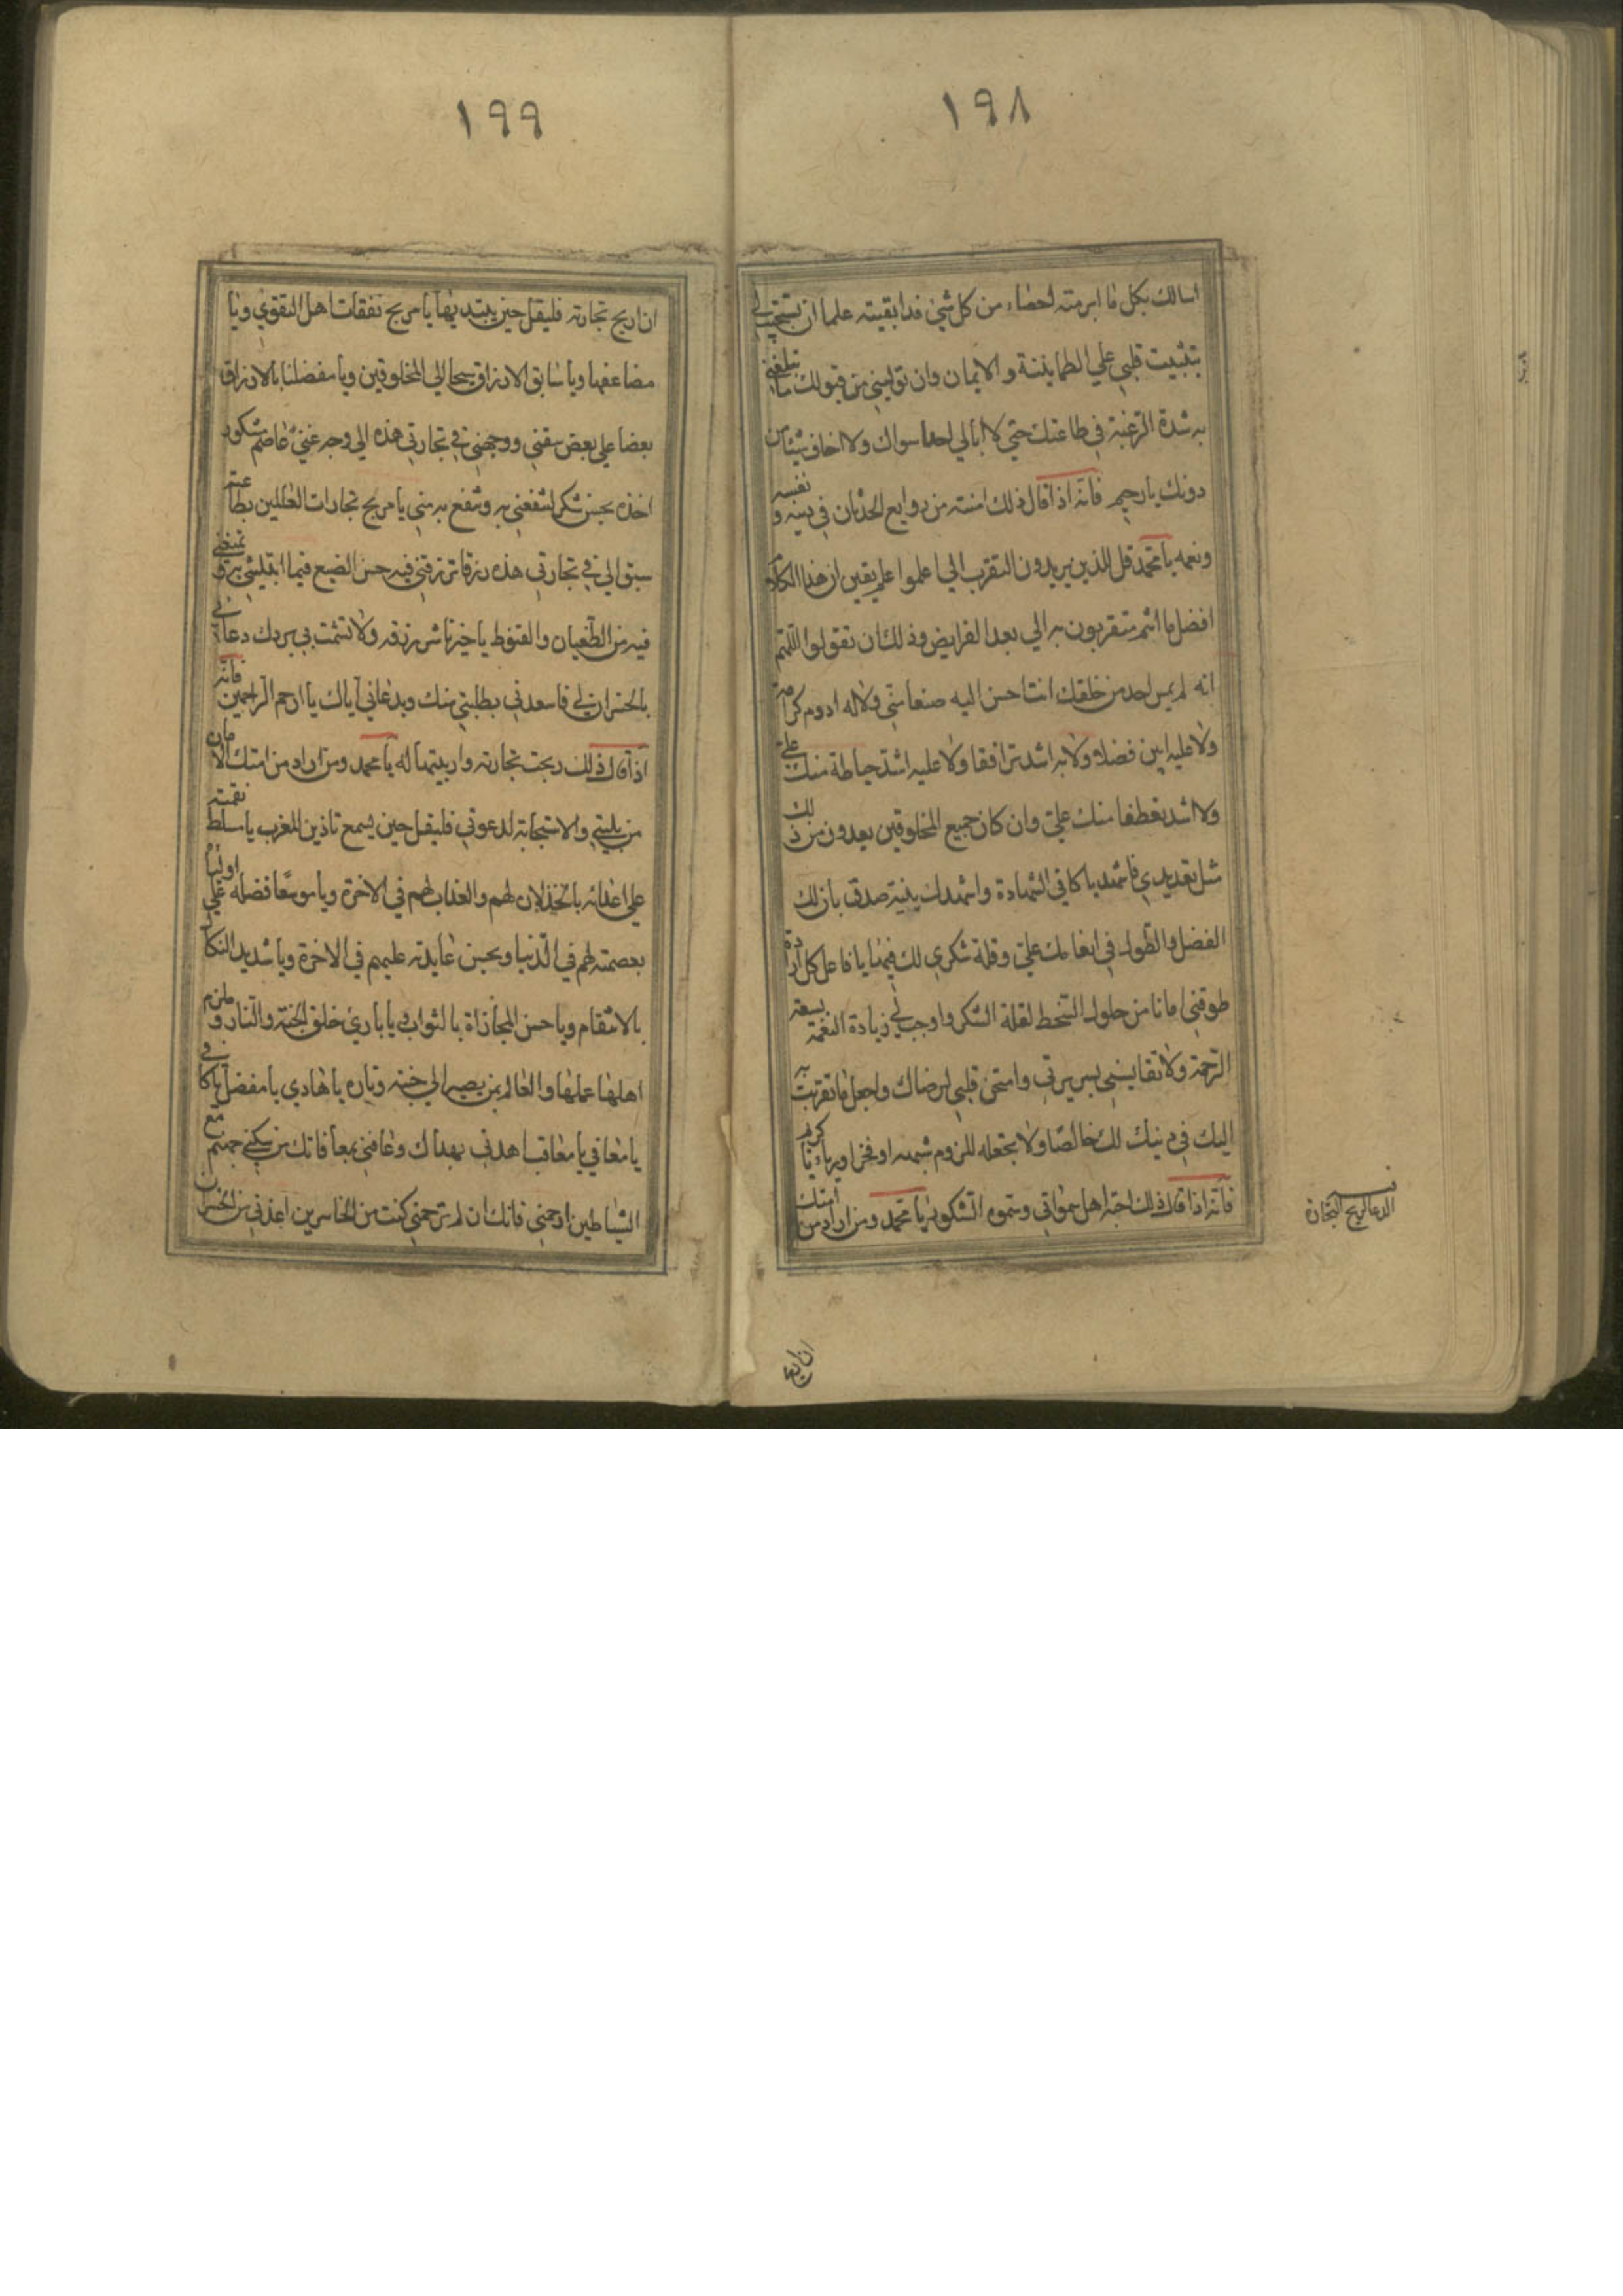 ١٩٨
اسالك بكل ما ابرمته احصاء من كل شي قد ابقيته علما ان تستجيب لي
بتثبيت قلبي علي الطمايننة والايمان وان توليني من قبولك ما تبلغني
به شدة الرغبة في طاعتك حتي لا ابالي احدا سواك ولا اخاف شيئا من
دونك يا رحيم فانه اذا قال ذلك امنته من روايع الحدثان في نفسه ودينه
ونعمه يا محمد قل للذين يريدون التقرب الي اعلموا علم يقين ان هذا الكلام
افضل ما انتم متقربون به الي بعد الفرايض وذلك ان تقولوا اللهم
انه لم يمس احد من خلقك انت احسن اليه صنعا مني ولا له ادوم كرامة
ولا عليه ابين فضلا ولا به اشد ترافقا ولا عليه اشد حياطة منك علي
ولا اشد تعطفا منك علي وان كان جميع المخلوقين يعددون من ذلك
مثل تعديدي فاشهد يا كافي الشهادة واشهدك بنية صدق بان لك
الفضل والطول في انعامك علي وقلة شكري لك فيها يا فاعل كل ارادة
طوقني امانا من حلول السخط لقلة الشكر واوجب لي زيادة النعمة بسعة
الرحمة ولا تقايسني بسريرتي وامتحن قلبي لرضاك واجعل ما تقربت به
اليك في دينك لك خالصا ولا تجعله للزوم شبهة او فخر او رياء يا كريم
فانه اذا قال ذلك احبه اهل سمواتي وسموه الشكور يا محمد ومن اراد من امتك
الدعا لربح التجارة
ان اربح
١٩٩
ان اربح تجارته فليقل حين يبتدي بها يا مربح نفقات اهل التقوي ويا
مضاعفها ويا سابق الارزاق سحا الي المخلوقين ويا مفضلنا بالارزاق
بعضا علي بعض سقني ووجهني في تجارتي هذه الي وجه غني عاصم شكور
اخذه بحسن شكر لتنفعني به وتنفع به مني يا مربح تجارات العالمين بطاعته
سبق الي في تجارتي هذه رزقا ترزقني فيه حسن الصنع فيما ابتليتني به وتمنعني
فيه من الطغيان والقنوط يا خير ناشر رزقه ولا تشمت بي بردك دعائي
بالخسران لي فاسعدني بطلبتي منك وبدعائي اياك يا ارحم الراحمين فانه
اذا قال ذلك ربحت تجارته واربيتها له يا محمد ومن اراد من امتك الامان
من بليتي والاستجابة لدعوتي فليقل حين يسمع تاذين المغرب يا مسلط نقمته
علي اعدائه بالخذلان لهم والعذاب لهم في الاخرة ويا موسعا فضله علي اوليائه
بعصمته لهم في الدنيا وبحسن عايدته عليهم في الاخرة ويا شديد النكال
بالانتقام ويا حسن المجازاة بالثواب يا باري خلق الجنة والنار وملزم
اهلها عملها والعالم بمن يصير الي جنته وناره يا هادي يا مفضل يا كافي
يا معافي يا معاقب اهدني بهداك وعافني بمعافاتك من سكني جهنم مع
الشياطين ارحمني فانك ان لم ترحمني كنت من الخاسرين اعذني من الخسران